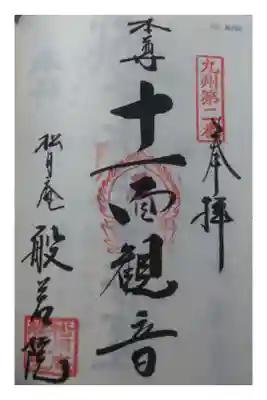 奉拝
九州第二番
本尊
十一面観音
松月庵
般若院